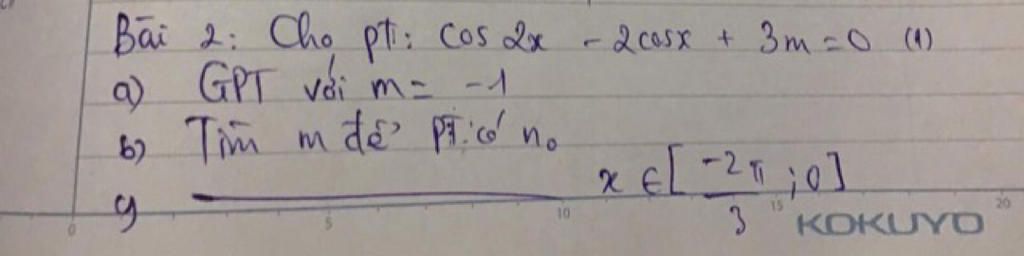 Bài 2: Cho pt: cos 2x - 2cosx + 3m = 0 (1)
a) GPT với m = -1
b) Tìm m để pt có n₀
c) ____________ x ∈ [-2π/3 ; 0]
0 5 10 15 20
KOKUYO